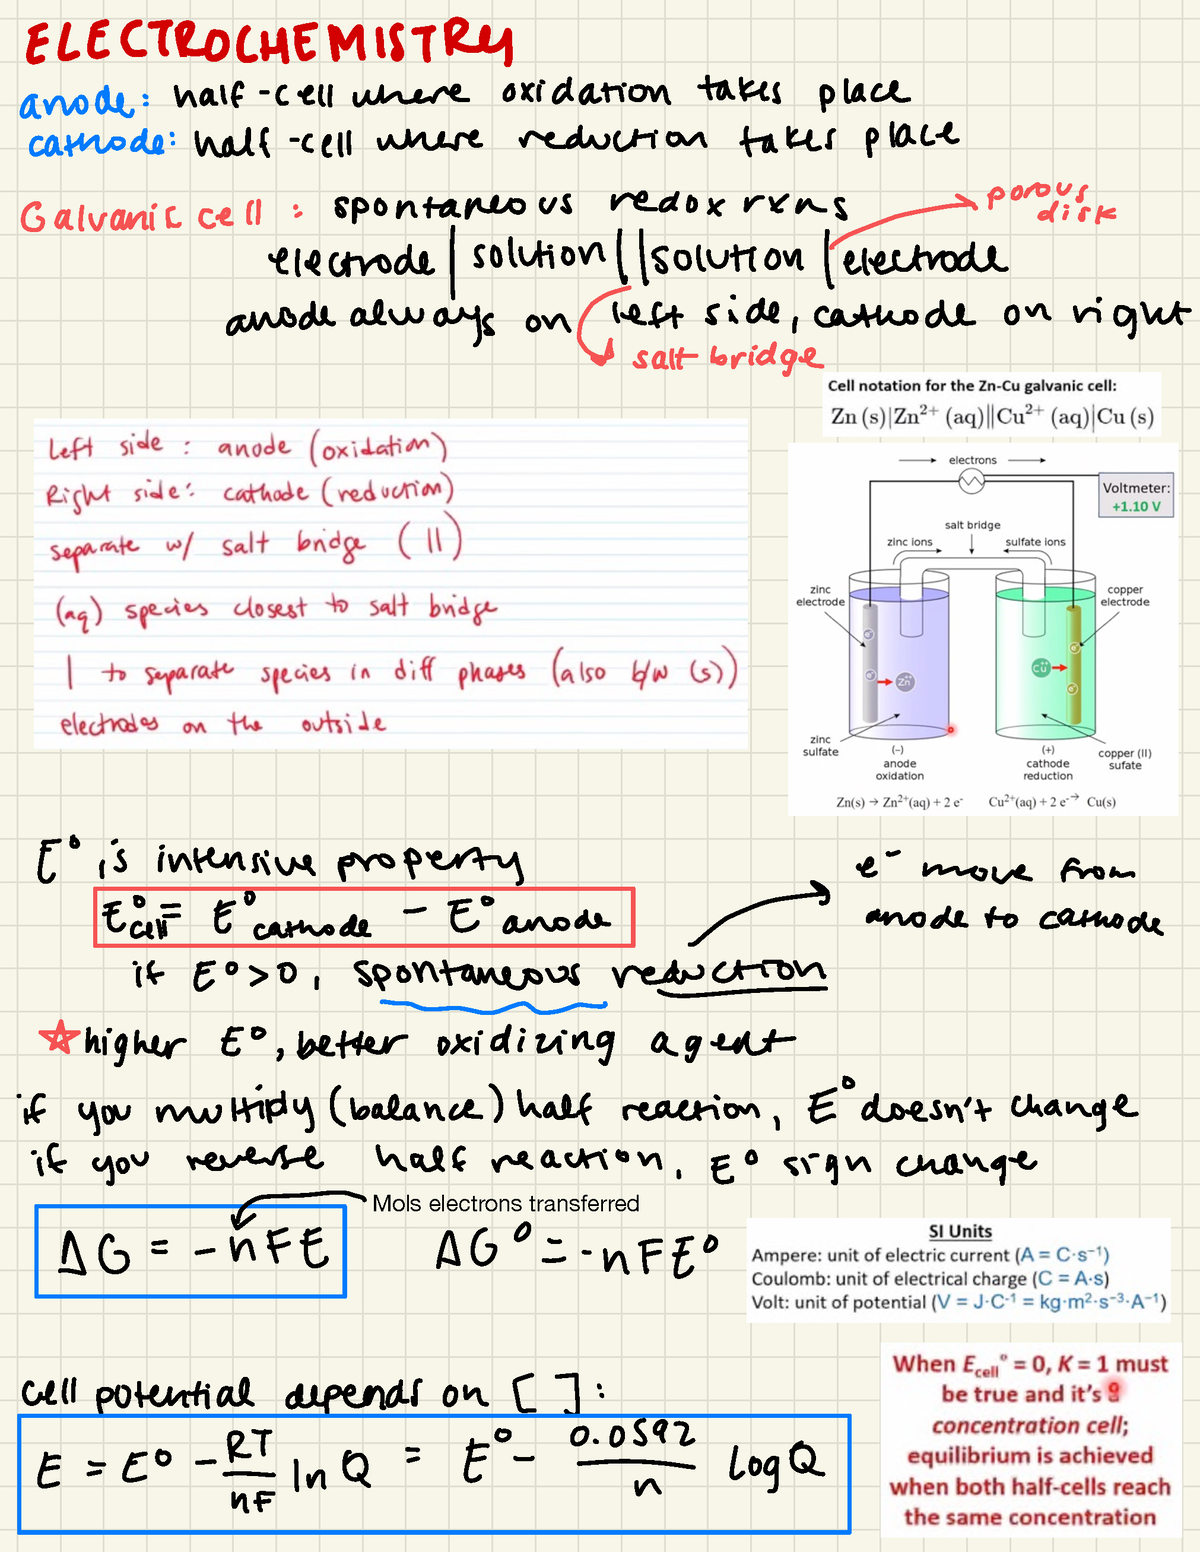 ELECTROCHEMISTRY
anode: half-cell where oxidation takes place
cathode: half-cell where reduction takes place
Galvanic cell : spontaneous redox rxns
porous disk
electrode | solution || solution | electrode
anode always on left side, cathode on right
salt bridge
Cell notation for the Zn-Cu galvanic cell:
Zn (s)|Zn²⁺ (aq)||Cu²⁺ (aq)|Cu (s)
Left side : anode (oxidation)
Right side: cathode (reduction)
separate w/ salt bridge ( || )
(aq) species closest to salt bridge
| to separate species in diff phases (also b/w (s))
electrodes on the outside
electrons
Voltmeter:
+1.10 V
salt bridge
zinc ions
sulfate ions
zinc
electrode
copper
electrode
e⁻
e⁻
Zn
Cu
e⁻
e⁻
zinc
sulfate
(-)
anode
oxidation
(+)
cathode
reduction
copper (II)
sufate
Zn(s) → Zn²⁺(aq) + 2 e⁻
Cu²⁺(aq) + 2 e⁻→ Cu(s)
E° is intensive property
E°cell = E°cathode - E°anode
if E°>0, spontaneous reduction
e⁻ move from
anode to cathode
☆higher E°, better oxidizing agent
if you multiply (balance) half reaction, E° doesn't change
if you reverse half reaction, E° sign change
Mols electrons transferred
ΔG = -nFE
ΔG° = -nFE°
SI Units
Ampere: unit of electric current (A = C·s⁻¹)
Coulomb: unit of electrical charge (C = A·s)
Volt: unit of potential (V = J·C⁻¹ = kg·m²·s⁻³·A⁻¹)
When Ecell° = 0, K = 1 must
be true and it's a
concentration cell;
equilibrium is achieved
when both half-cells reach
the same concentration
cell potential depends on [ ]:
E = E° - RT/nF ln Q = E° - 0.0592/n log Q